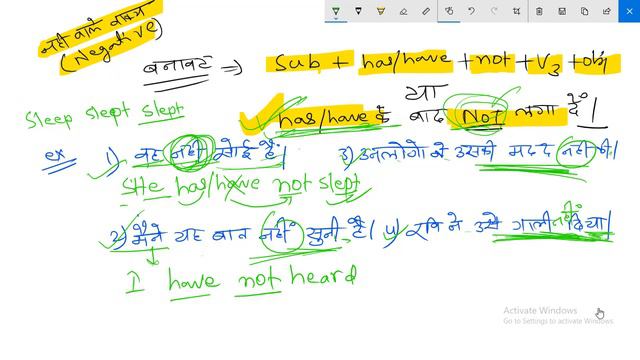 नही वाले वाक्य
(Negative)
बनावट ⇒ Sub + has/have + not + V3 + obj
या
Sleep slept slept
has/have के बाद Not लगा दें।
ex 1) वह नही सोई है।
She has/have not slept
2) मैंने यह बात नहीं सुनी है।
I have not heard
3) उनलोगो ने उसकी मदद नहीं की।
4) रवि ने उसे गाली नहीं दिया।
Activate Windows
Go to Settings to activate Windows.